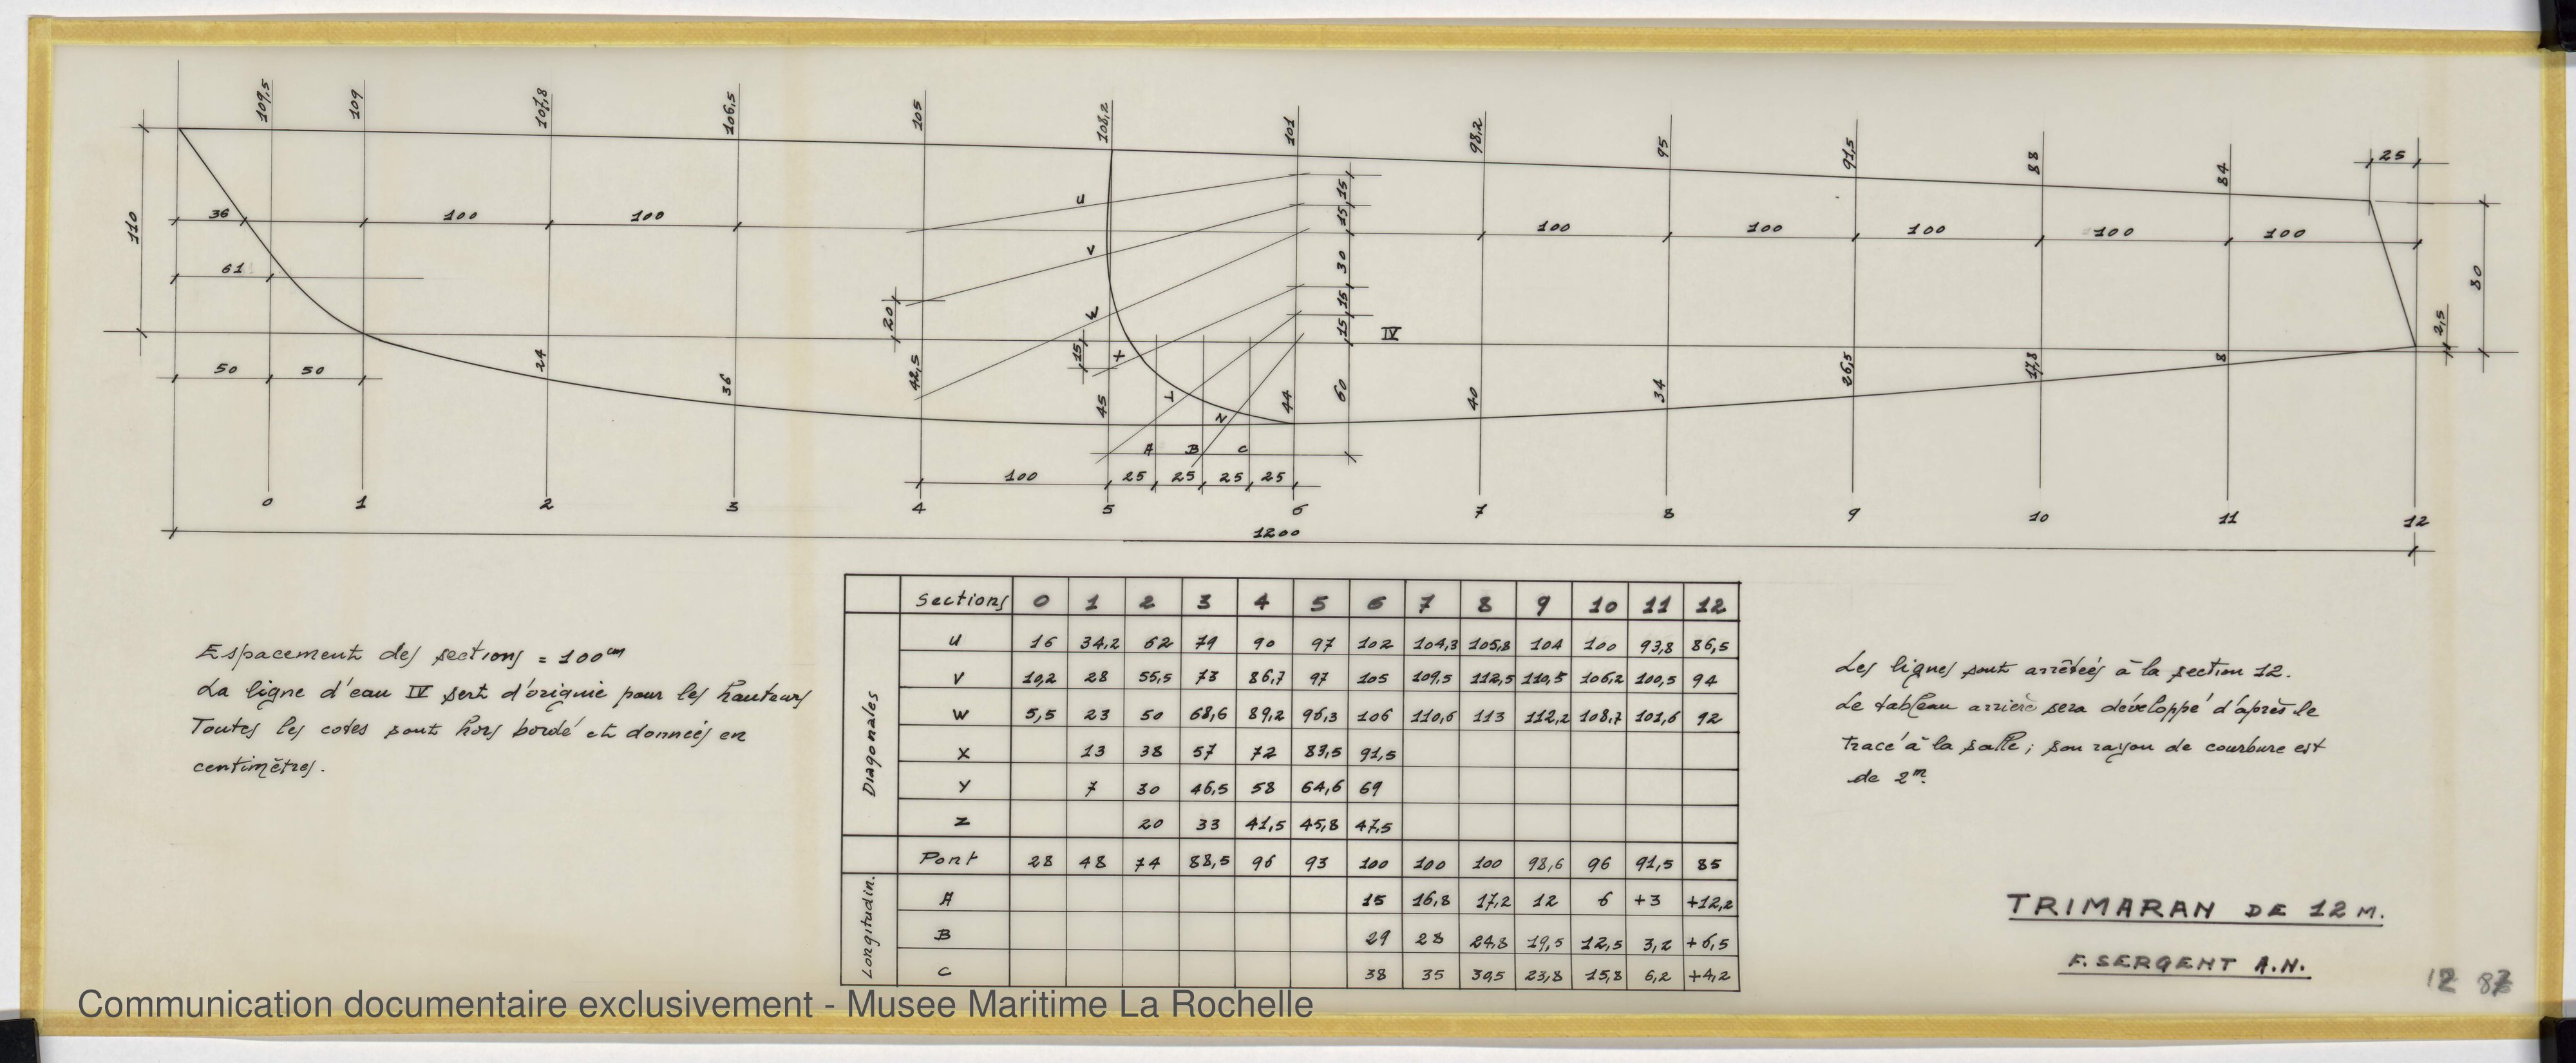 109,5 109 107,8 106,5 105 103,2 101 98,2 95 91,5 88 84 25
110 36 100 100 100 100 100 100 100
61
U
V
W
X
Y
Z
15 15 30 15 15 60
20
15
IV
80
2,5
50 50 24 36 42,5 45 44 40 34 26,5 17,8 8
A B C
100 25 25 25 25
0 1 2 3 4 5 6 7 8 9 10 11 12
1200
Espacement des sections = 100cm
La ligne d'eau IV sert d'origine pour les hauteurs
Toutes les cotes sont hors bordé et données en
centimètres.
Sections 0 1 2 3 4 5 6 7 8 9 10 11 12
Diagonales
U 16 34,2 62 79 90 97 102 104,3 105,8 104 100 93,8 86,5
V 10,2 28 55,5 73 86,7 97 105 109,5 112,5 110,5 106,2 100,5 94
W 5,5 23 50 68,6 89,2 96,3 106 110,6 113 112,2 108,7 101,6 92
X 13 38 57 72 83,5 91,5
Y 7 30 46,5 58 64,6 69
Z 20 33 41,5 45,8 47,5
Pont 28 48 74 88,5 96 93 100 100 100 98,6 96 91,5 85
Longitudin.
A 15 16,8 17,2 12 6 +3 +12,2
B 29 28 24,8 19,5 12,5 3,2 +6,5
C 38 35 30,5 23,8 15,8 6,2 +4,2
Les lignes sont arrêtées à la section 12.
Le tableau arrière sera développé d'après le
tracé à la salle ; son rayon de courbure est
de 2m.
TRIMARAN DE 12 M.
F. SERGENT A.N.
12
Communication documentaire exclusivement - Musee Maritime La Rochelle